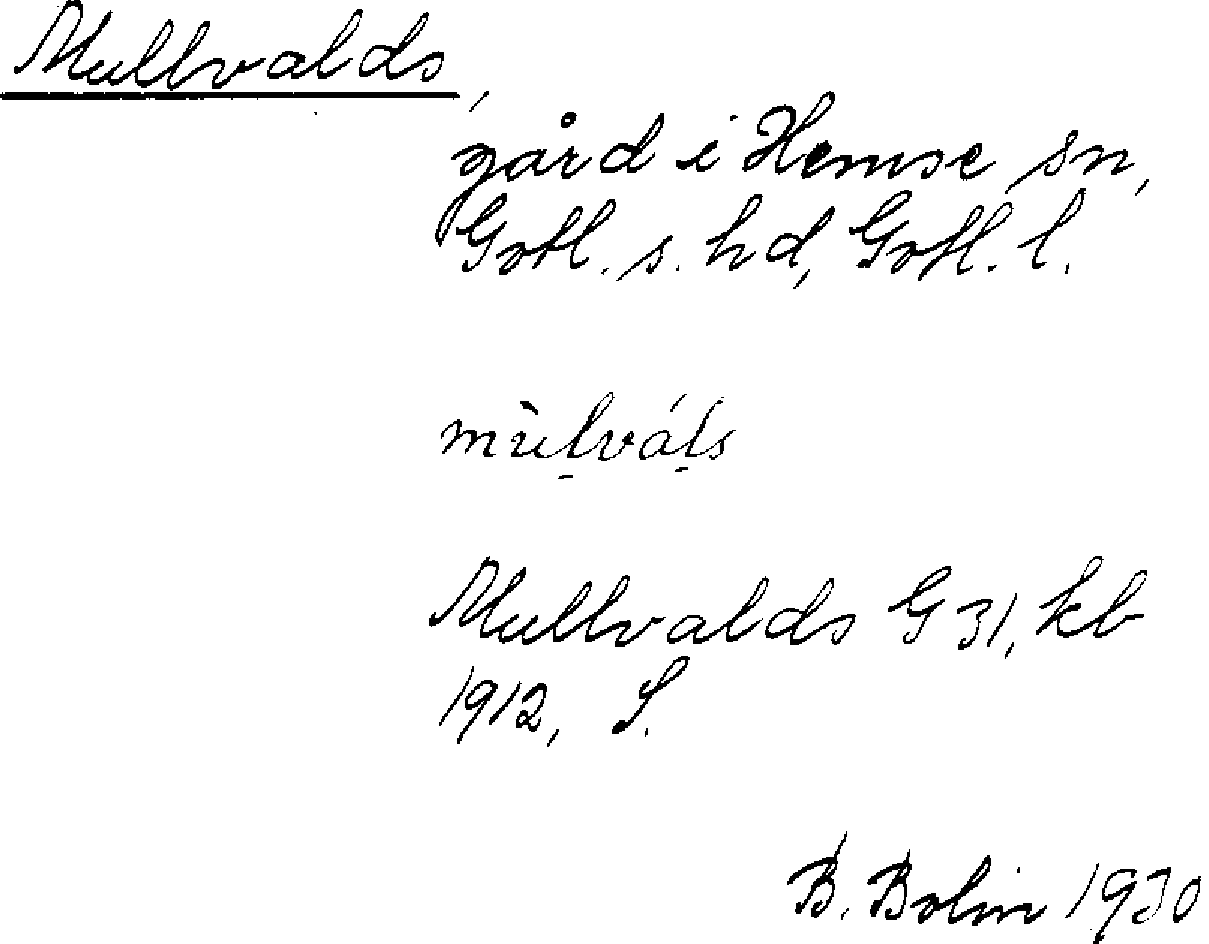 Mullvalds,
gård i Hemse sn,
Gotl. s. hd, Gotl. l.
mùl̠vál̠s
Mullvalds G 31, kb
1912, S.
B. Bolin 1930